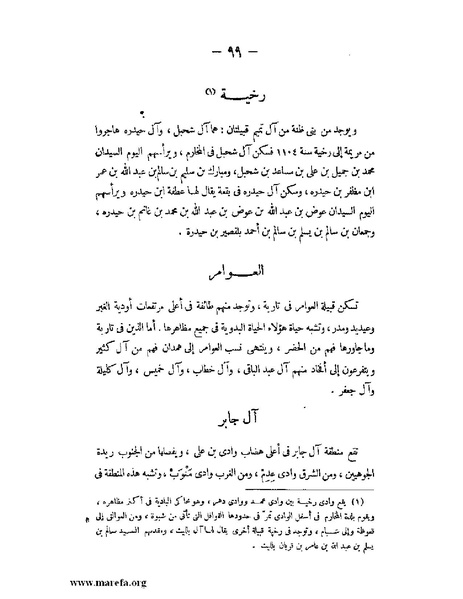 — ٩٩ —
رخيـــة (١)
ويوجد من بنى ظنة من آل تميم قبيلتان : هما آل شحبل ، وآل حيدره هاجروا
من مريمة إلى رخية سنة ١١٠٤ فسكن آل شحبل فى المخارم ، ويرأسهم اليوم السيدان
محمد بن جميل بن على بن مساعد بن شحبل، ومبارك بن سليم بن سالم بن عبد الله بن عمر
ابن مظفر بن حيدره ، وسكن آل حيدره فى بقعة يقال لها عطفة ابن حيدره ويرأسهم
اليوم السيدان عوض بن عبد الله بن عوض بن عبد الله بن محمد بن غانم بن حيدره ،
وجمعان بن سالم بن يسلم بن سالم بن أحمد بلقصير بن حيدرة .
العـــوامر
تسكن قبيلة العوامر فى تاربة ، وتوجد منهم طائفة فى أعلى مرتفعات أودية الغبر
وعيديد ومدر، وتشبه حياة هؤلاء الحياة البدوية فى جميع مظاهرها . أما الذين فى تاربة
وماجاورها فهم من الحضر ، وينتهى نسب العوامر إلى همدان فهم من آل كثير
ويتفرعون إلى أفخاذ منهم آل عبد الباقى ، وآل خطاب ، وآل خميس ، وآل كليلة
وآل جعفر .
آل جابر
تقع منطقة آل جابر فى أعلى هضاب وادى بن على ، ويفصلها من الجنوب ريدة
الجوهيين ، ومن الشرق وادى عِدِم ، ومن الغرب وادى مَنْوَب ، وتشبه هذه المنطقة فى
(١) يقع وادى رخيـة بين وادى عمـد ووادى دهر ، وهو يحاكى البادية فى أكثر مظاهره ،
ويقوم المخارم فى أسفل الوادى تمرّ فى حدودها القوافل التى تأتى من شبوة ، ومن الموالى إلى
قعوظة وإلى شبـام ، وتوجد فى رخية قبيلة أخرى يقال لهـا آل بليث ، ومقدمهم السيد سالم بن
يسلم بن عبد الله بن عامر بن بليث .
www.marefa.org